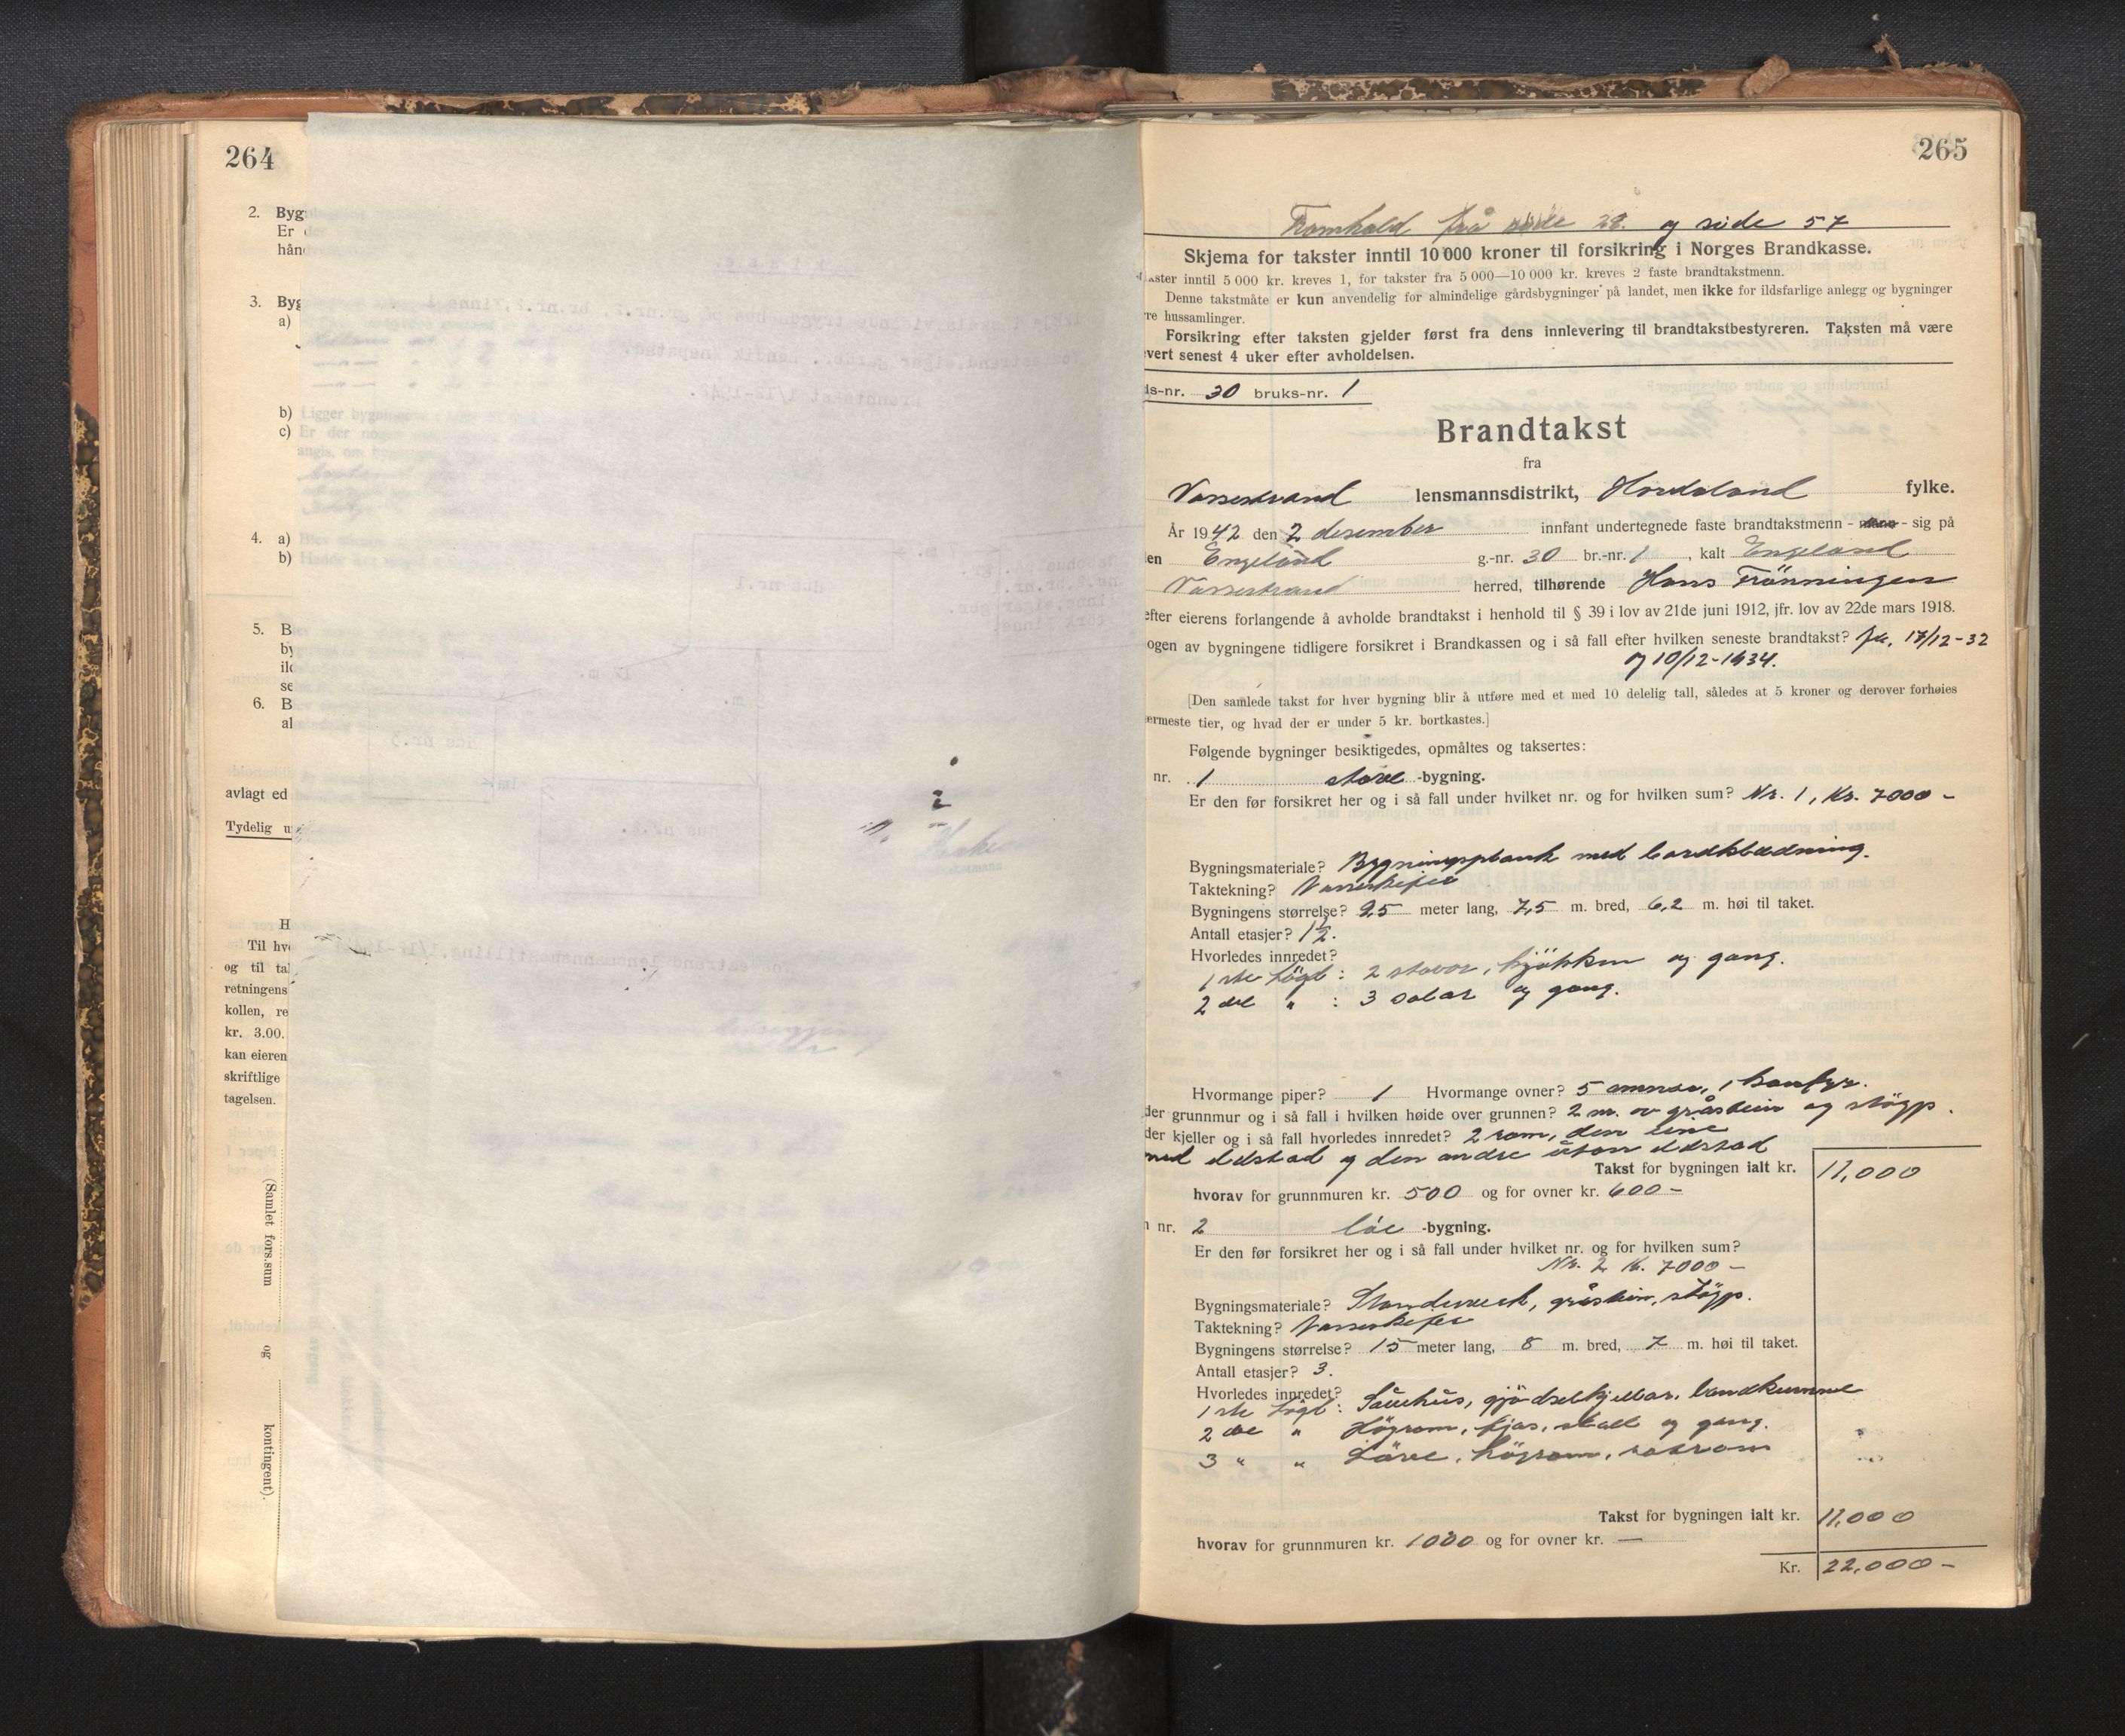 264
2. Byg
Er
hån
3. Byg
a)
b) Ligger bygningene
c) Er der nogen
angis, om by
4. a)
b)
5. B
by
ild
se
6. B
al
avlagt ed
Tydelig u
H
Til hve
og til tal
retningens
kollen, re
kr. 3.00.
kan eieren
skriftlige
tagelsen.
(Samlet fors.sum og kontingent).
265
Framhald frå side 28. og side 57
Skjema for takster inntil 10 000 kroner til forsikring i Norges Brandkasse.
kster inntil 5 000 kr. kreves 1, for takster fra 5 000—10 000 kr. kreves 2 faste brandtakstmenn.
Denne takstmåte er kun anvendelig for almindelige gårdsbygninger på landet, men ikke for ildsfarlige anlegg og bygninger
re hussamlinger.
Forsikring efter taksten gjelder først fra dens innlevering til brandtakstbestyreren. Taksten må være
vert senest 4 uker efter avholdelsen.
ds-nr. 30 bruks-nr. 1
Brandtakst
fra
Vossestrand lensmannsdistrikt, Hordaland fylke.
År 1942 den 2 desember innfant undertegnede faste brandtakstmenn - - sig på
en Engeland g.-nr. 30 br.-nr. 1, kalt Engeland
Vossestrand herred, tilhørende Hans Trönningen
efter eierens forlangende å avholde brandtakst i henhold til § 39 i lov av 21de juni 1912, jfr. lov av 22de mars 1918.
ogen av bygningene tidligere forsikret i Brandkassen og i så fall efter hvilken seneste brandtakst? Ja, 17/12-32
og 10/12-1934.
[Den samlede takst for hver bygning blir å utføre med et med 10 delelig tall, således at 5 kroner og derover forhøies
ermeste tier, og hvad der er under 5 kr. bortkastes.]
Følgende bygninger besiktigedes, opmåltes og taksertes:
nr. 1 stove -bygning.
Er den før forsikret her og i så fall under hvilket nr. og for hvilken sum? Nr. 1, Kr. 7000 -
Bygningsmateriale? Bygningsplank med bordklædning.
Taktekning? Vosseskifer
Bygningens størrelse? 9,5 meter lang, 7,5 m. bred, 6,2 m. høi til taket.
Antall etasjer? 1½.
Hvorledes innredet?
1ste högd: 2 stovor, kjökken og gang.
2 dre " : 3 salar og gang.
Hvormange piper? 1 Hvormange ovner? 5 omnar, 1 komfyr.
der grunnmur og i så fall i hvilken høide over grunnen? 2 m. av gråstein og stöyp.
der kjeller og i så fall hvorledes innredet? 2 rom, den eine
med eldstad og den andre utan eldstad
Takst for bygningen ialt kr. 11,000
hvorav for grunnmuren kr. 500 og for ovner kr. 600 -
n nr. 2 löe -bygning.
Er den før forsikret her og i så fall under hvilket nr. og for hvilken sum?
Nr. 2 Kr. 7000 -
Bygningsmateriale? Standverk, gråstein, stöyp.
Taktekning? Vosseskifer
Bygningens størrelse? 15 meter lang, 8 m. bred, 7 m. høi til taket.
Antall etasjer? 3.
Hvorledes innredet?
1ste högd: Sauehus, gjödselkjellar, landkumme
2 dre " Höyrom, fjos, stall og gang.
3 " " Låve, höyrom,
Takst for bygningen ialt kr. 11,000
hvorav for grunnmuren kr. 1000 og for ovner kr. —
Kr. 22,000 -